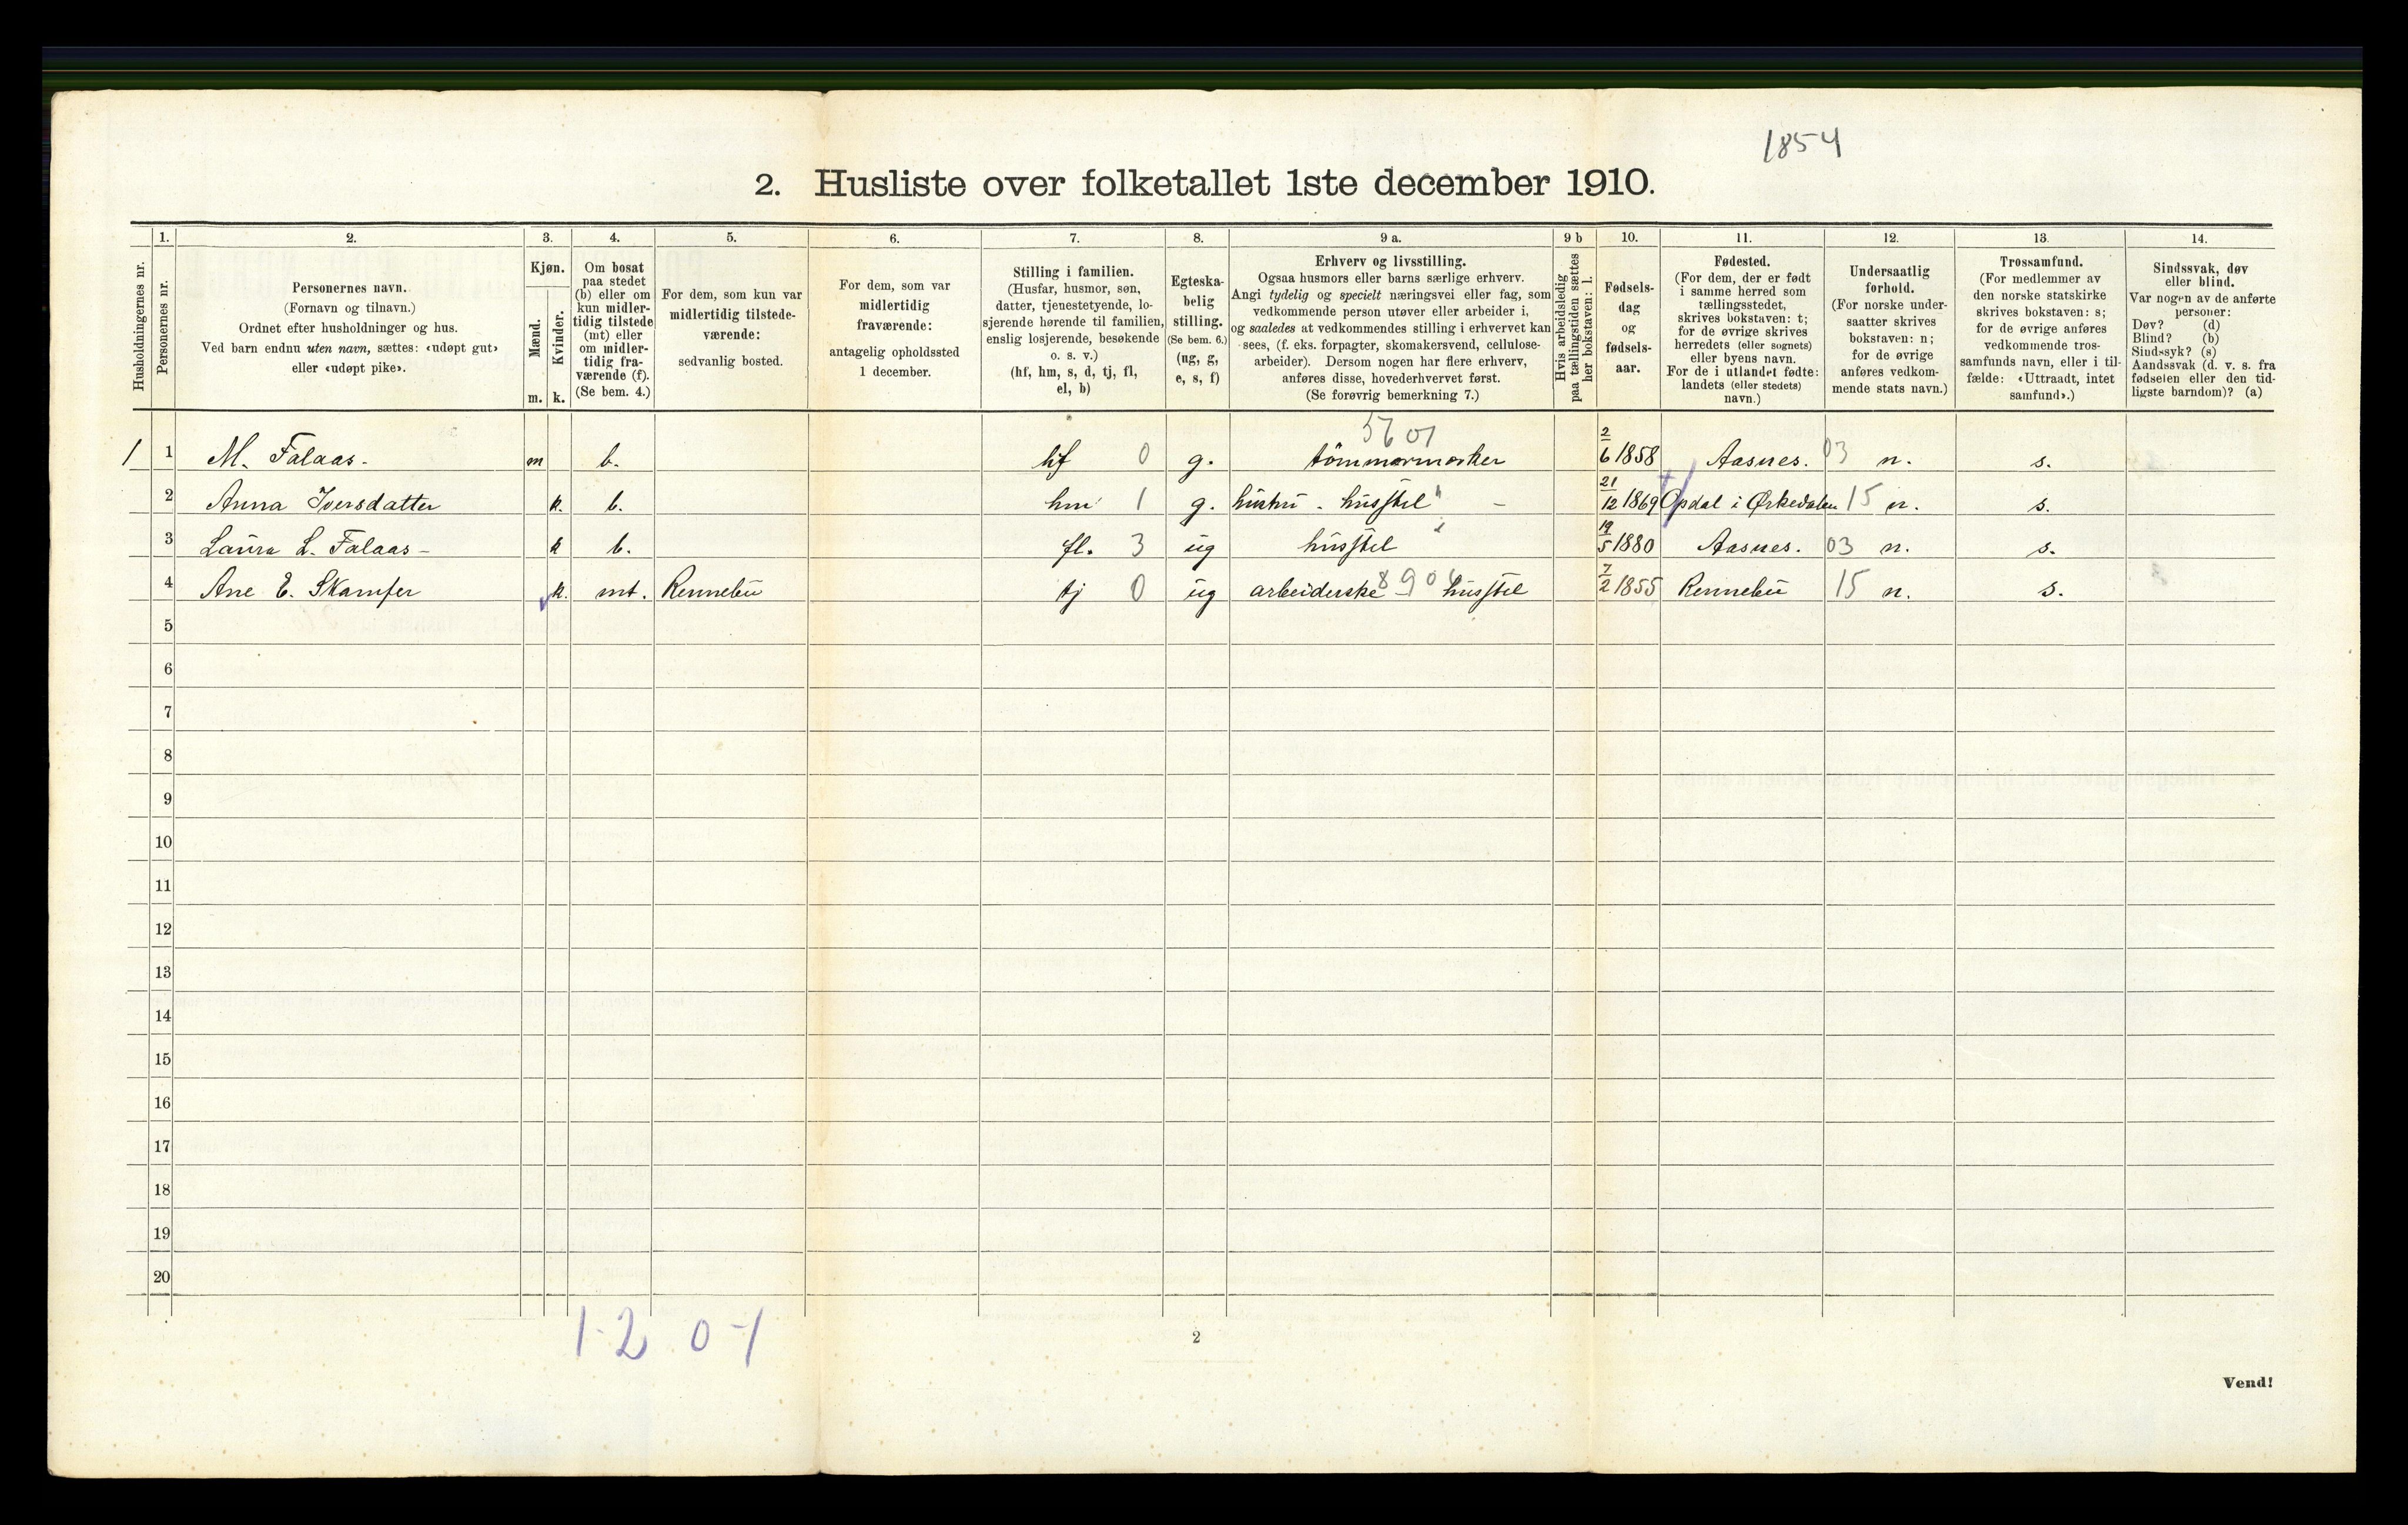 1854
2. Husliste over folketallet 1ste december 1910.
Husholdningernes nr.
1.
Personernes nr.
2.
Personernes navn.
(Fornavn og tilnavn.)
Ordnet efter husholdninger og hus.
Ved barn endnu uten navn, sættes: «udøpt gut»
eller «udøpt pike».
3.
Kjøn.
Mænd.
Kvinder.
m. k.
4.
Om bosat
paa stedet
(b) eller om
kun midler-
tidig tilstede
(mt) eller
om midler-
tidig fra-
værende (f).
(Se bem. 4.)
5.
For dem, som kun var
midlertidig tilstede-
værende:
sedvanlig bosted.
6.
For dem, som var
midlertidig
fraværende:
antagelig opholdssted
1 december.
7.
Stilling i familien.
(Husfar, husmor, søn,
datter, tjenestetyende, lo-
sjerende hørende til familien,
enslig losjerende, besøkende
o. s. v.)
(hf, hm, s, d, tj, fl,
el, b)
8.
Egteska-
belig
stilling.
(Se bem. 6.)
(ug, g,
e, s, f)
9 a.
Erhverv og livsstilling.
Ogsaa husmors eller barns særlige erhverv.
Angi tydelig og specielt næringsvei eller fag, som
vedkommende person utøver eller arbeider i,
og saaledes at vedkommendes stilling i erhvervet kan
sees, (f. eks. forpagter, skomakersvend, cellulose-
arbeider). Dersom nogen har flere erhverv,
anføres disse, hovederhvervet først.
(Se forøvrig bemerkning 7.)
9 b
Hvis arbeidsledig
paa tællingstiden sættes
her bokstaven: l.
10.
Fødsels-
dag
og
fødsels-
aar.
11.
Fødested.
(For dem, der er født
i samme herred som
tællingsstedet,
skrives bokstaven: t;
for de øvrige skrives
herredets (eller sognets)
eller byens navn.
For de i utlandet fødte:
landets (eller stedets)
navn.)
12.
Undersaatlig
forhold.
(For norske under-
saatter skrives
bokstaven: n;
for de øvrige
anføres vedkom-
mende stats navn.)
13.
Trossamfund.
(For medlemmer av
den norske statskirke
skrives bokstaven: s;
for de øvrige anføres
vedkommende tros-
samfunds navn, eller i til-
fælde: «Uttraadt, intet
samfund».)
14.
Sindssvak, døv
eller blind.
Var nogen av de anførte
personer:
Døv? (d)
Blind? (b)
Sindssyk? (s)
Aandssvak (d. v. s. fra
fødselen eller den tid-
ligste barndom)? (a)
5601
1 1 M. Falaas. m b. hf 0 g. tömmermerker 2/6 1858 Aasnes. 03 n. s.
2 Anna Iversdatter k. b. hm 1 g. hustru - husstel - 21/12 1869 Opdal i Ørkedalen 15 n. s.
3 Laura L. Falaas - k b. fl. 3 ug husstel 19/5 1880 Aasnes. 03 n. s.
4 Ane E. Skamfer k. mt. Rennebu tj 0 ug arbeiderske husstel 7/2 1855 Rennebu 15 n. s.
5
6
7
8
9
10
11
12
13
14
15
16
17
18
19
20
1-2 0-1
2
Vend!